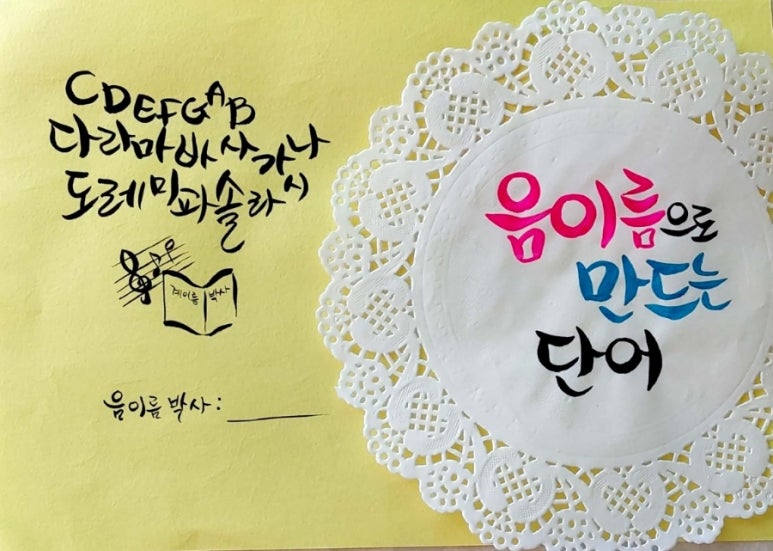 CDEFGAB
다라마바사가나
도레미파솔라시
계이름 박사
음이름 박사 :
음이름으로
만드는
단어